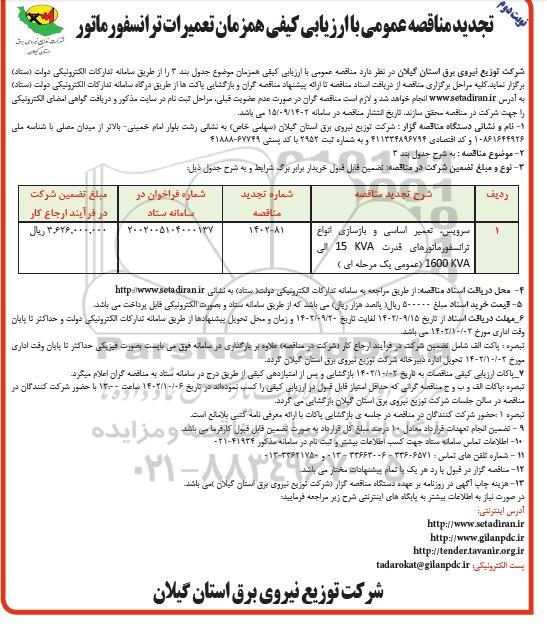 نوبت دوم
تجدید مناقصه عمومی با ارزیابی کیفی همزمان تعمیرات ترانسفورماتور
شرکت توزیع نیروی برق
استان گیلان
شرکت توزیع نیروی برق استان گیلان در نظر دارد مناقصه عمومی با ارزیابی کیفی همزمان موضوع جدول بند ۳ را از طریق سامانه تدارکات الکترونیکی دولت (ستاد)
برگزار نماید.کلیه مراحل برگزاری مناقصه از دریافت اسناد مناقصه تا ارائه پیشنهاد مناقصه گران و بازگشایی پاکت ها از طریق درگاه سامانه تدارکات الکترونیکی دولت (ستاد)
به آدرس www.setadiran.ir انجام خواهد شد و لازم است مناقصه گران در صورت عدم عضویت قبلی، مراحل ثبت نام در سایت مذکور و دریافت گواهی امضای الکترونیکی
را جهت شرکت در مناقصه محقق سازند. تاریخ انتشار مناقصه در سامانه ۱۴۰۲/۰۹/۱۵ می باشد.
۱- نام و نشانی دستگاه مناقصه گزار : شرکت توزیع نیروی برق استان گیلان (سهامی خاص) به نشانی رشت بلوار امام خمینی- بالاتر از میدان مصلی با شناسه ملی
۱۰۸۶۱۶۴۴۹۲۶ و کد اقتصادی ۴۱۱۳۳۴۸۹۶۷۹۴ و به شماره ثبت ۲۹۵۲ با کد پستی ۶۷۷۴۹-۴۱۸۸۸
۲- موضوع مناقصه : به شرح جدول بند ۳
۳- نوع و مبلغ تضمین شرکت در مناقصه: تضمین قابل قبول خریدار برابر برگ شرایط و به شرح جدول ذیل:
ردیف شرح تجدید مناقصه شماره تجدید مناقصه شماره فراخوان در سامانه ستاد مبلغ تضمین شرکت در فرآیند ارجاع کار
۱ سرویس، تعمیر اساسی و بازسازی انواع ۱۴۰۲-۸۱ ۲۰۰۲۰۰۵۱۰۴۰۰۰۱۳۷ ۳,۶۲۶,۰۰۰,۰۰۰ ریال
ترانسفورماتورهای قدرت 15 KVA الی
1600 KVA (عمومی یک مرحله ای )
۴- محل دریافت اسناد مناقصه: از طریق مراجعه به سامانه تدارکات الکترونیکی دولت( ستاد) به نشانی http://www.setadiran.ir
۵- قیمت خرید اسناد مبلغ ۵۰۰۰۰۰ ریال( پانصد هزار ریال) می باشد که از طریق سامانه ستاد و بصورت الکترونیکی قابل پرداخت می باشد.
۶_مهلت دریافت اسناد از تاریخ ۱۴۰۲/۰۹/۱۵ لغایت تاریخ ۱۴۰۲/۰۹/۲۰ و زمان و محل تحویل پیشنهادها از طریق سامانه تدارکات الکترونیکی دولت و حداکثر تا پایان
وقت اداری مورخ ۱۴۰۲/۱۰/۰۲ می باشد.
تبصره : پاکت الف شامل تضمین شرکت در فرآیند ارجاع کار (شرکت در مناقصه) علاوه بر بارگذاری در سامانه فوق می بایست بصورت فیزیکی حداکثر تا پایان وقت اداری
مورخ ۱۴۰۲/۱۰/۰۲ تحویل اداره دبیرخانه شرکت توزیع نیروی برق استان گیلان گردد.
۷_پاکات ارزیابی کیفی مناقصات به تاریخ ۱۴۰۲/۱۰/۰۲ بازگشایی و پس از امتیازدهی کیفی از طریق درج در سامانه ستاد به مناقصه گران اعلام میگردد.
تبصره :پاکات الف و ب و ج مناقصه گرانی که حداقل امتیاز قابل قبول در ارزیابی کیفی را کسب نموده‌اند در تاریخ ۱۴۰۲/۱۰/۰۶ ساعت ۱۳:۰۰ با حضور شرکت کنندگان در
مناقصه در سالن جلسات شرکت توزیع نیروی برق استان گیلان بازگشایی می گردد.
تبصره ۱ :حضور شرکت کنندگان در مناقصه در جلسه ی بازگشایی پاکات با ارائه معرفی نامه کتبی بلامانع است.
۹ - تضمین انجام تعهدات قرارداد معادل ۱۰ درصد مبلغ کل قرارداد به صورت تضمین قابل قبول کارفرما می باشد.
۱۰- اطلاعات تماس سامانه ستاد جهت کسب اطلاعات بیشتر و ثبت نام در سامانه مذکور ۴۱۹۳۴-۰۲۱
۱۱ - شماره تلفن های تماس : ۳۳۶۰۶۵۷۱ - ۳۳۶۶۳۰۰۶ - ۰۱۳ و ۳۳۶۲۱۷۵۰-۰۱۳
۱۲- مناقصه گزار در قبول یا رد هر یک یا تمام پیشنهادات مختار می باشد.
۱۳- هزینه چاپ آگهی در روزنامه بر عهده دستگاه مناقصه گزار (شرکت توزیع نیروی برق استان گیلان )می باشد.
در صورت نیاز به اطلاعات بیشتر به پایگاه های اینترنتی شرح زیر مراجعه فرمایید:
آدرس اینترنتی:
http://www.setadiran.ir
http://www.gilanpdc.ir
http://tender.tavanir.org.ir
پست الکترونیکی: tadarokat@gilanpdc.ir
شرکت توزیع نیروی برق استان گیلان